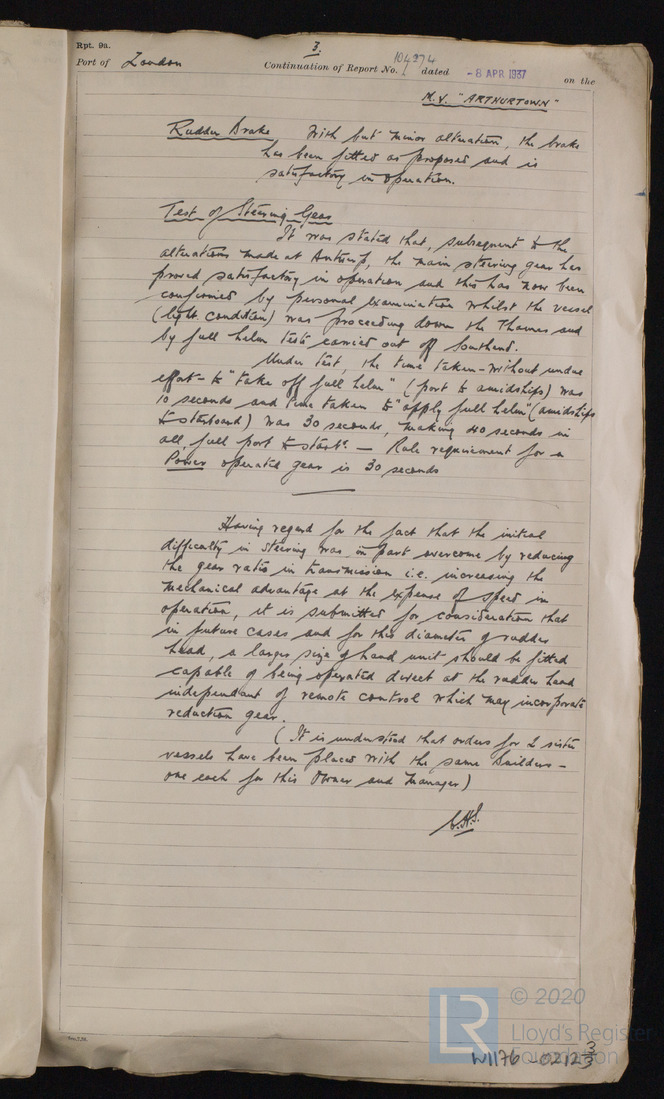 Rpt. 9a.
3.
Port of London
Continuation of Report No. 104274 dated - 8 APR 1937
on the
M.V. "ARTHURTOWN"
Rudder Brake With but minor alteration, the brake
has been fitted as proposed and is
satisfactory in operation.
Test of Steering Gear
It was stated that, subsequent to the
alterations made at Antwerp, the main steering gear has
proved satisfactory in operation and this has now been
confirmed by personal examination whilst the vessel
(light condition) was proceeding down the Thames and
by full helm tests carried out off Southend.
Under test, the time taken - without undue
effort - to "take off full helm" (port to amidships) was
10 seconds and time taken to "apply full helm" (amidships
to starboard) was 30 seconds, making 40 seconds in
all, full port to starbd. — Rule requirement for a
Power operated gear is 30 seconds
Having regard for the fact that the initial
difficulty in steering was in part overcome by reducing
the gear ratio in transmission i.e. increasing the
mechanical advantage at the expense of speed in
operation, it is submitted for consideration that
in future cases and for this diameter of rudder
head, a larger size of hand unit should be fitted
capable of being operated direct at the rudder head
independant of remote control which may incorporate
reduction gear.
(It is understood that orders for 2 sister
vessels have been placed with the same Builders -
one each for this Owner and Manager)
© 2020
LR
Lloyd's Register
Foundation
W1176-0212 3/3